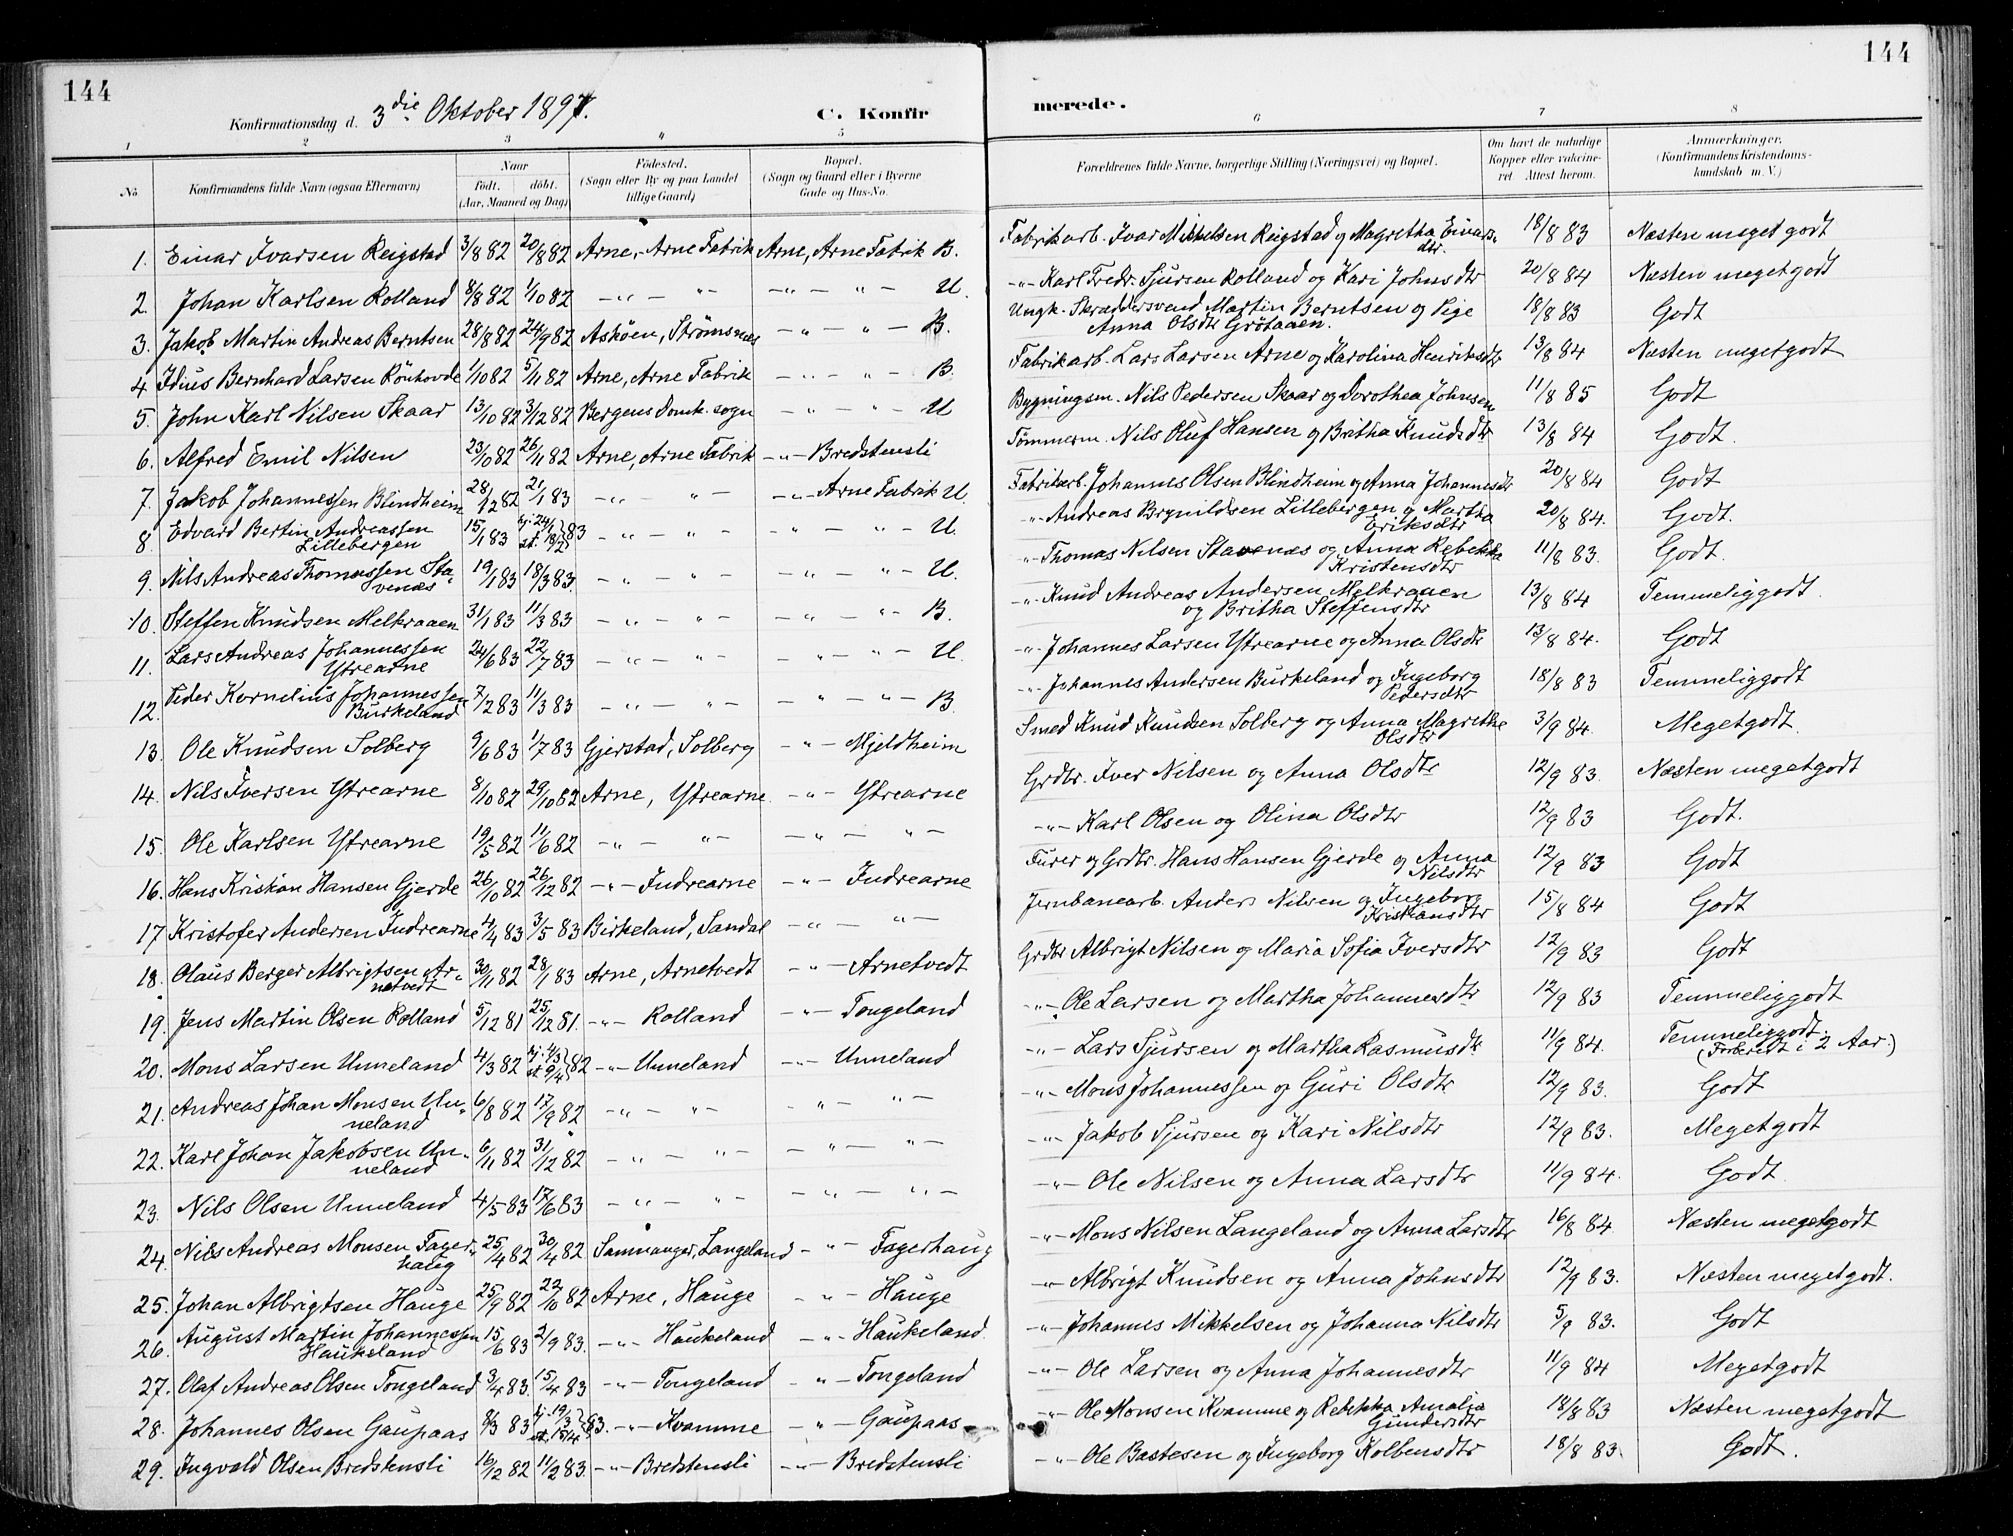 144
144
Konfirmationsdag d. 3die Oktober 1897. C. Konfirmerede.
1 2 3 4 5 6 7 8
No
Konfirmandens fulde Navn (ogsaa Efternavn)
Naar født. døbt. (Aar, Maaned og Dag)
Fødested. (Sogn eller By og paa Landet tillige Gaard)
Bopæl. (Sogn og Gaard eller i Byerne Gade og Hus-No.
Forældrenes fulde Navne, borgerlige Stilling (Næringsvei) og Bopæl.
Om havt de naturlige Kopper eller vakcineret Attest herom.
Anmærkninger. (Konfirmandens Kristendomskundskab m. V.)
1. Einar Ivarsen Reigstad 3/8 82 20/8 82 Arne, Arne Fabrik Arne, Arne Fabrik B. Fabrikarb. Ivar Mikkelsen Reigstad og Magretha Einarsdtr. 18/8 83 Næsten meget godt
2. Johan Karlsen Rolland 8/8 82 1/10 82 -"- -"- -"- -"- U. -"- Karl Fredr. Sjursen Rolland og Kari Johnsdtr 20/8 84 Næsten megetgodt
3. Jakob Martin Andreas Berntsen 28/8 82 24/9 82 Askøen, Strømsnes -"- -"- B. Ungk. Skræddersvend Martin Berntsen og Pige Anna Olsdtr Grøtaaen. 18/8 83 Godt
4 Idius Bernhard Larsen Rönhovde 1/10 82 5/11 82 Arne, Arne Fabrik -"- -"- B. Fabrikarb. Lars Larsen Arne og Karolina Henriksdtr 13/8 84 Næsten megetgodt
5. John Karl Nilsen Skaar 13/10 82 3/12 82 Bergens Domk. sogn -"- -"- U Bygningsm. Nils Pedersen Skaar og Dorothea Johnsen 11/8 85 Godt
6. Alfred Emil Nilsen 23/10 82 26/11 82 Arne, Arne Fabrik -"- Bredstensli Tømmerm. Nils Oluf Hansen og Britha Knudsdtr 13/8 84 Godt.
7. Jakob Johannessen Blindheim 28/12 82 21/1 83 -"- -"- -"- Arne Fabrik U. Fabrikarb. Johannes Olsen Blindheim og Anna Johannesdtr 20/8 84 Godt
8. Edvard Bertin Andreassen Lillebergen 15/1 83 hj. 24/1 st. 18/2 83 -"- -"- -"- -"- U. -"- Andreas Brynildsen Lillebergen og Martha Eriksdtr 20/8 84. Godt.
9. Nils Andreas Thomassen Stavenes 19/1 83 18/3 83. -"- -"- -"- -"- U. -"- Thomas Nilsen Stavenes og Anna Rebekka Kristensdtr 11/8 83 Godt.
10. Steffen Knudsen Melkraaen 31/1 83 11/3 83 -"- -"- -"- -"- B. -"- Knud Andreas Andersen Melkraaen og Britha Steffensdtr 13/8 84 Temmeliggodt.
11. Lars Andreas Johannessen Ytrearne 24/6 83 22/7 83 -"- -"- -"- -"- U. -"- Johannes Larsen Ytrearne og Anna Olsdtr 13/8 84. Godt
12. Peder Kornelius Johannessen Burkeland 7/2 83 11/3 83 -"- -"- -"- -"- B. -"- Johannes Andersen Burkeland og Ingeborg Pedersdtr 18/8 83 Temmeliggodt
13. Ole Knudsen Solberg 9/6 83 1/7 83 Gjerstad, Solberg -"- Mjeldheim Smed Knud Knudsen Solberg og Anna Magrethe Olsdtr 3/9 84. Megetgodt.
14. Nils Iversen Ytrearne 8/10 82 29/10 82 Arne, Ytrearne. -"- Ytrearne Grdbr. Iver Nilsen og Anna Olsdtr 12/9 83. Næsten megetgodt
15. Ole Karlsen Ytrearne 19/5 82 11/6 82 -"- -"- -"- -"- -"- Karl Olsen og Olina Olsdtr 12/9 83 Godt.
16. Hans Kristian Hansen Gjerde 26/10 82 26/12 82 -"- Indrearne -"- Indrearne Furer og Grdbr. Hans Hansen Gjerde og Anna Nilsdtr 12/9 83 Godt
17 Kristofer Andersen Indrearne 4/4 83 3/5 83 Birkeland, Sandal -"- -"- Jernbanearb. Anders Nilsen og Ingeborg Kristiansdtr 15/8 84 Godt
18. Olaus Berger Albrigtsen Arnetvedt 30/11 82 28/1 83 Arne, Arnetvedt -"- Arnetvedt Grdbr Albrigt Nilsen og Maria Sofia Iversdtr 12/9 83 Godt
19. Jens Martin Olsen Rolland 5/12 81 25/12 81. -"- Rolland -"- Tongeland -"- Ole Larsen og Martha Johannesdtr 12/9 83 Temmeliggodt
20. Mons Larsen Unneland 4/3 82 hj. 4/3 st. 9/4 82 -"- Unneland -"- Unneland -"- Lars Sjursen og Martha Rasmusdtr 11/9 84. Temmeliggodt. (Forberedt i 2 Aar.)
21. Andreas Johan Monsen Unneland 6/8 82 17/9 82 -"- -"- -"- -"- -"- Mons Johannessen og Guri Olsdtr 12/9 83. Godt
22. Karl Johan Jakobsen Unneland 6/11 82 31/12 82 -"- -"- -"- -"- -"- Jakob Sjursen og Kari Nilsdtr 12/9 83. Megetgodt
23. Nils Olsen Unneland 4/5 83 17/6 83 -"- -"- -"- -"- -"- Ole Nilsen og Anna Larsdtr 11/9 84. Godt
24. Nils Andreas Monsen Fagerhaug 25/4 82 30/4 82 Samnanger, Langeland -"- Fagerhaug -"- Mons Nilsen Langeland og Anna Larsdtr 16/8 84 Næsten megetgodt
25. Johan Albrigtsen Hauge 25/9 82 22/10 82 Arne, Hauge -"- Hauge -"- Albrigt Knudsen og Anna Johnsdtr 12/9 83. Næsten megetgodt.
26. August Martin Johannessen Haukeland 15/6 83 2/9 83. -"- Haukeland -"- Haukeland. -"- Johannes Mikkelsen og Johanna Nilsdtr 5/9 83. Godt
27. Olaf Andreas Olsen Tongeland 3/4 83. 15/4 83 -"- Tongeland -"- Tongeland -"- Ole Larsen og Anna Johannesdtr 11/9 84 Megetgodt
28. Johannes Olsen Gaupaas 8/3 83 hj. 19/3 st. 15/4 83. -"- Kvamme -"- Gaupaas -"- Ole Monsen Kvamme og Rebekka Amalia Gundersdtr 18/8 83 Næsten megetgodt
29. Ingvald Olsen Bredstensli 16/12 82 11/2 83. -"- Bredstensli -"- Bredstensli -"- Ole Bastesen og Ingeborg Kolbensdtr 18/8 83. Godt.